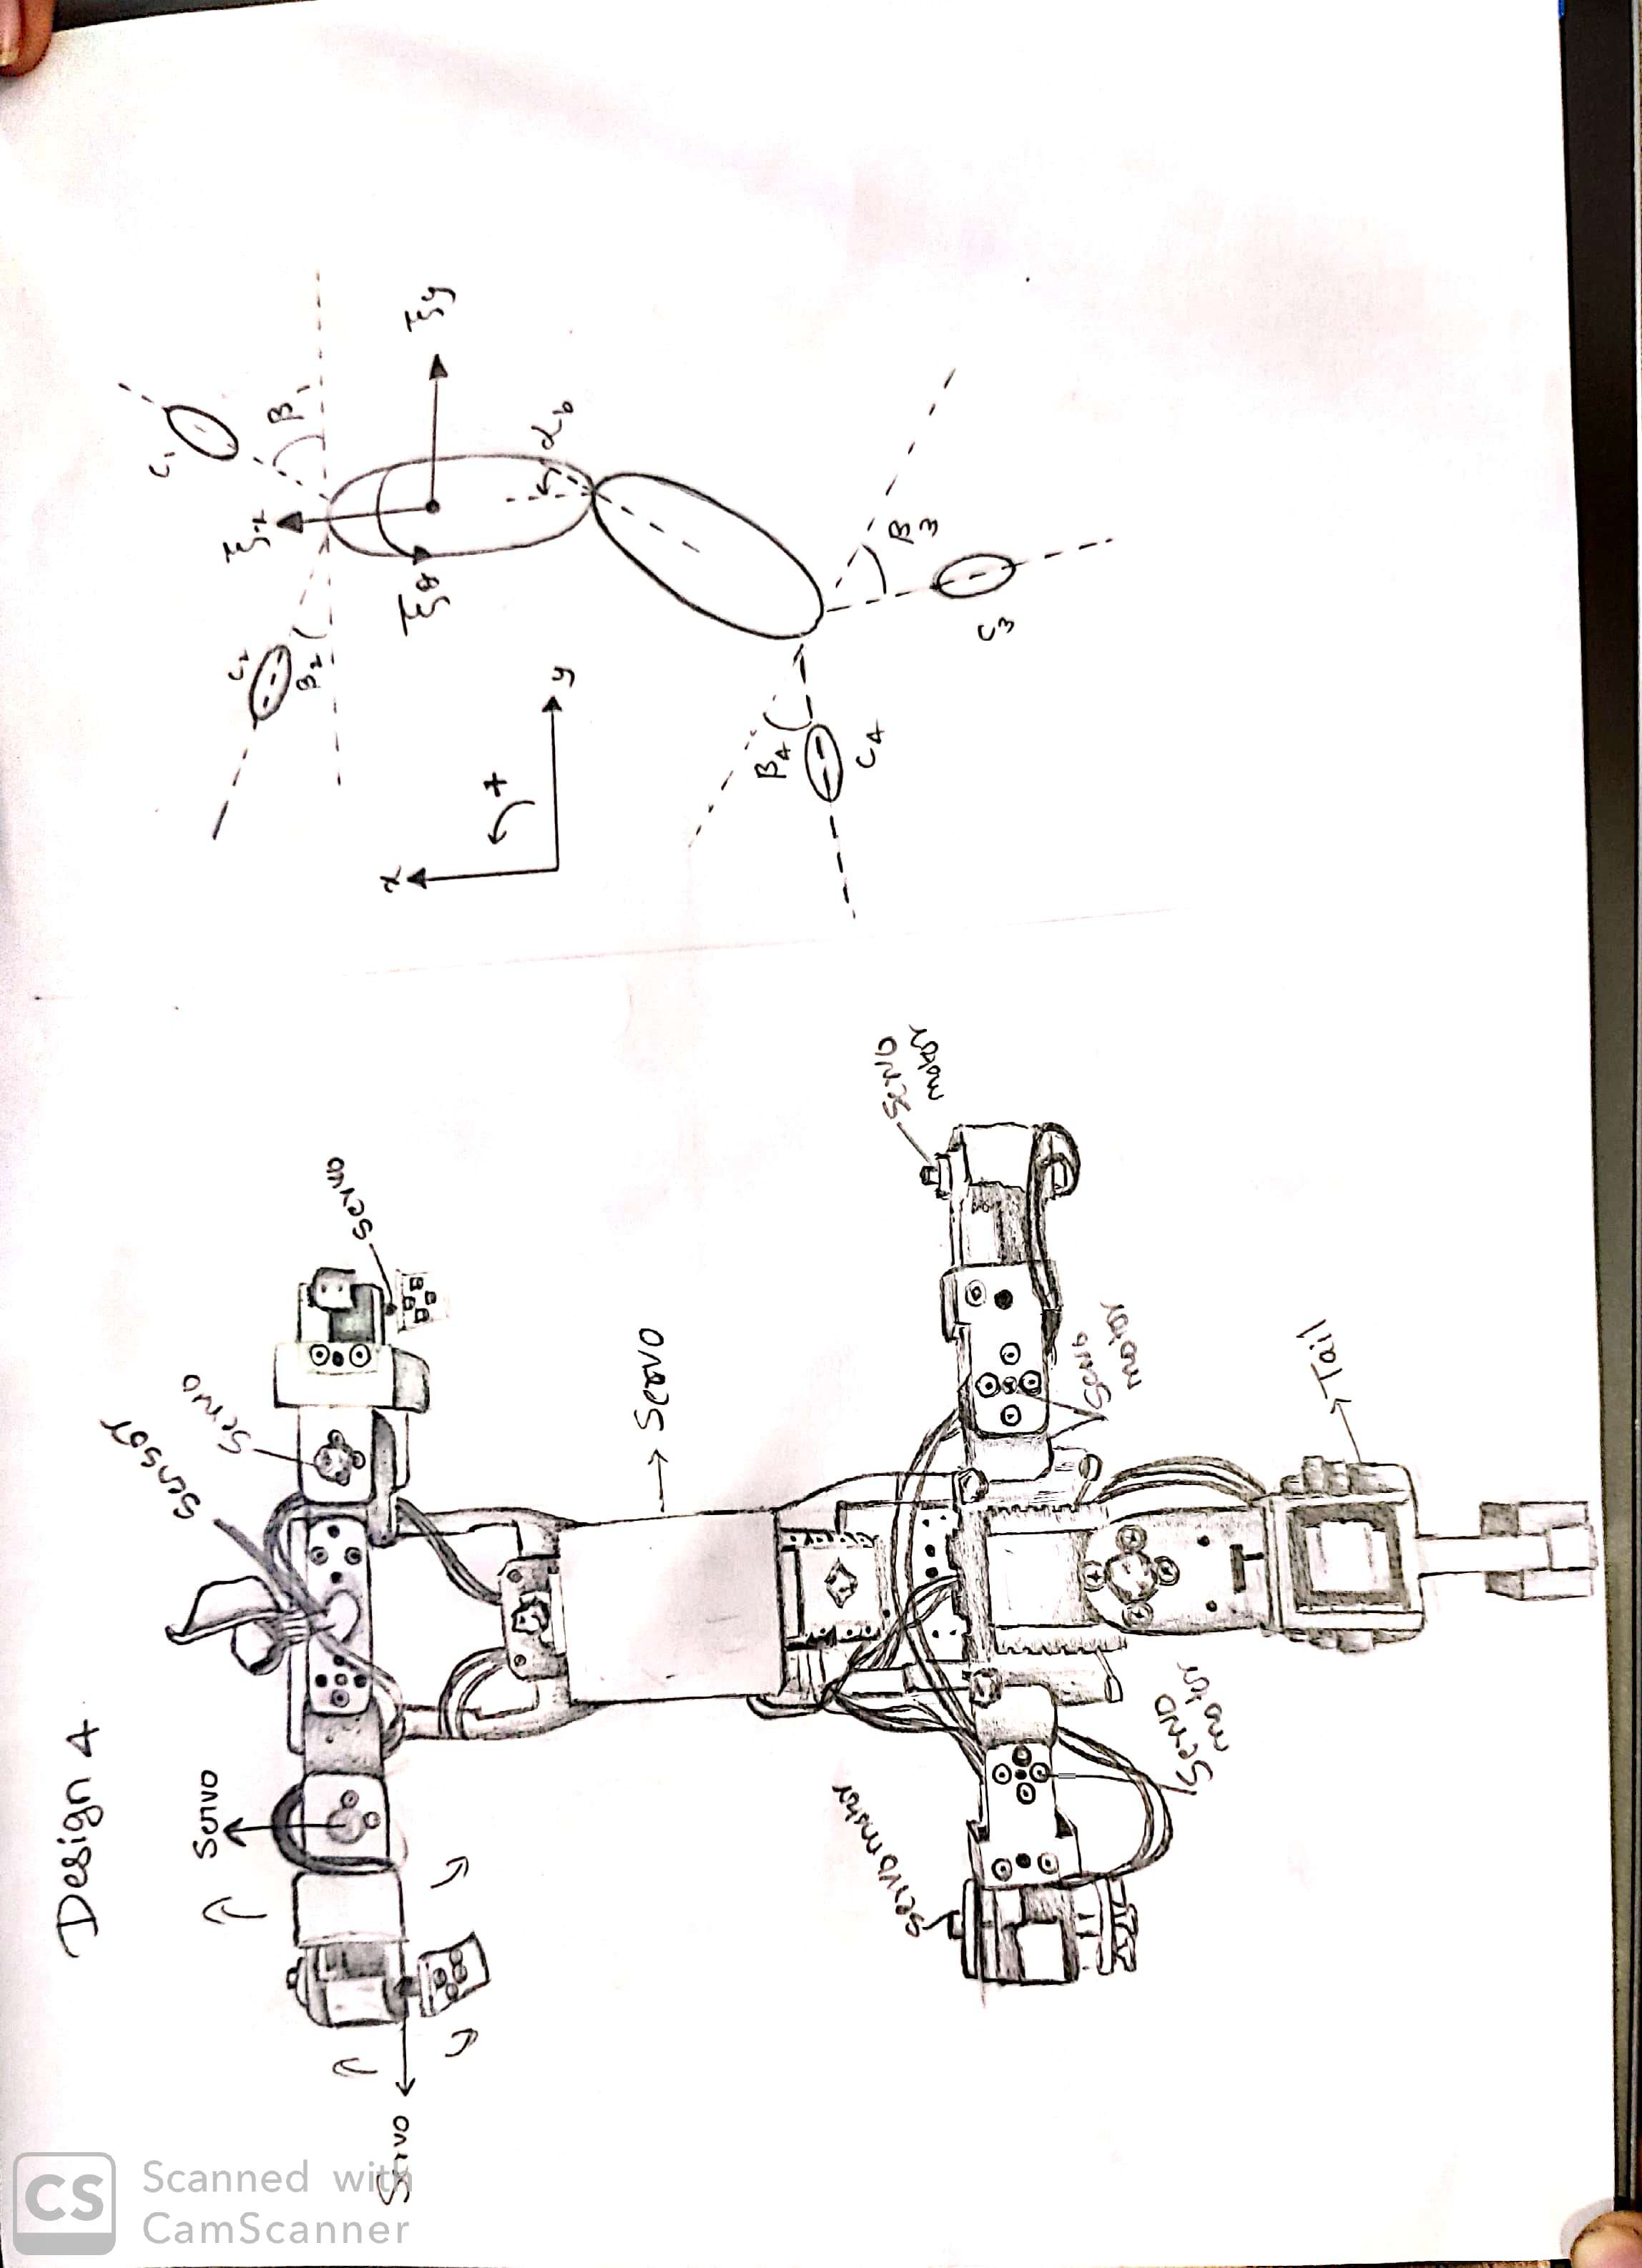 Design 4
Sensor
Servo
Servo
Servo
Servo
→ Servo
Servo
motor
Servo
motor
Servo motor
Servo
motor
→ Tail
C₁
β₁
ξx
ξy
ξθ
C₂
β₂
αb
x
y
+
β₃
C₃
β₄
C₄
CS
Scanned with
CamScanner